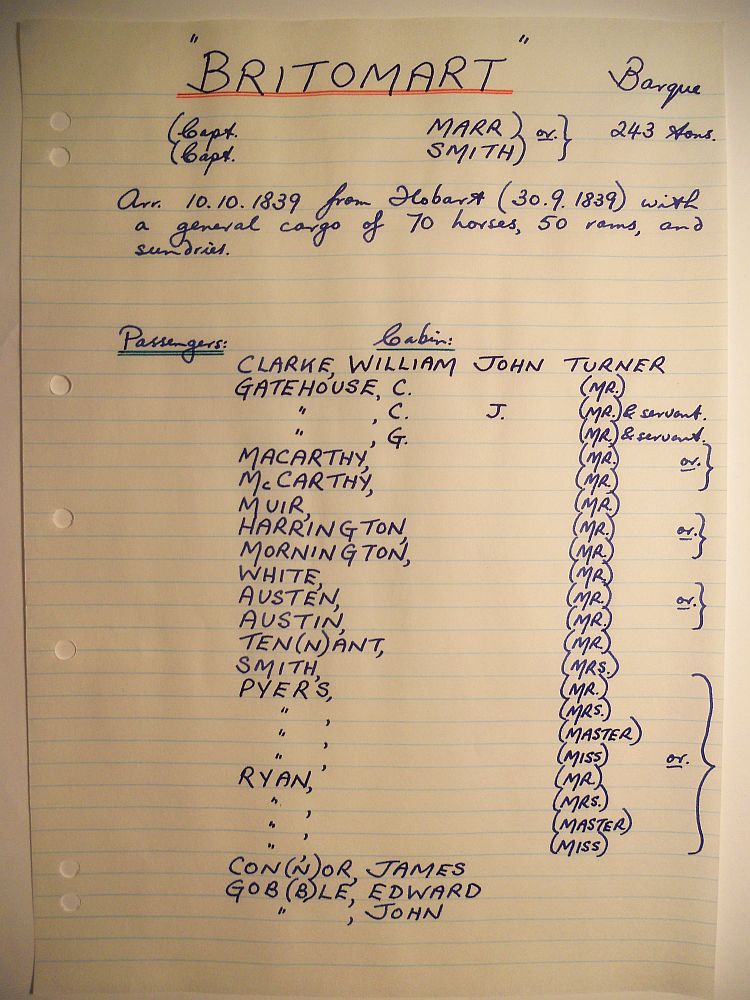 "BRITOMART" Barque
(Capt. MARR) or. } 243 tons.
(Capt. SMITH)
Arr. 10.10.1839 from Hobart (30.9.1839) with
a general cargo of 70 horses, 50 rams, and
sundries.
Passengers: Cabin:
CLARKE, WILLIAM JOHN TURNER
GATEHOUSE, C. (MR.)
" , C. J. (MR.) & servant.
" , G. (MR.) & servant.
MACARTHY, (MR.) or. }
McCARTHY, (MR.)
MUIR, (MR.)
HARRINGTON, (MR.) or. }
MORNINGTON, (MR.)
WHITE, (MR.)
AUSTEN, (MR.) or. }
AUSTIN, (MR.)
TEN(N)ANT, (MR.)
SMITH, (MRS.)
PYERS, (MR.)
" , (MRS.)
" , (MASTER)
" , (MISS) or. }
RYAN, (MR.)
" , (MRS.)
" , (MASTER)
" , (MISS)
CON(N)OR, JAMES
GOB(B)LE, EDWARD
" , JOHN